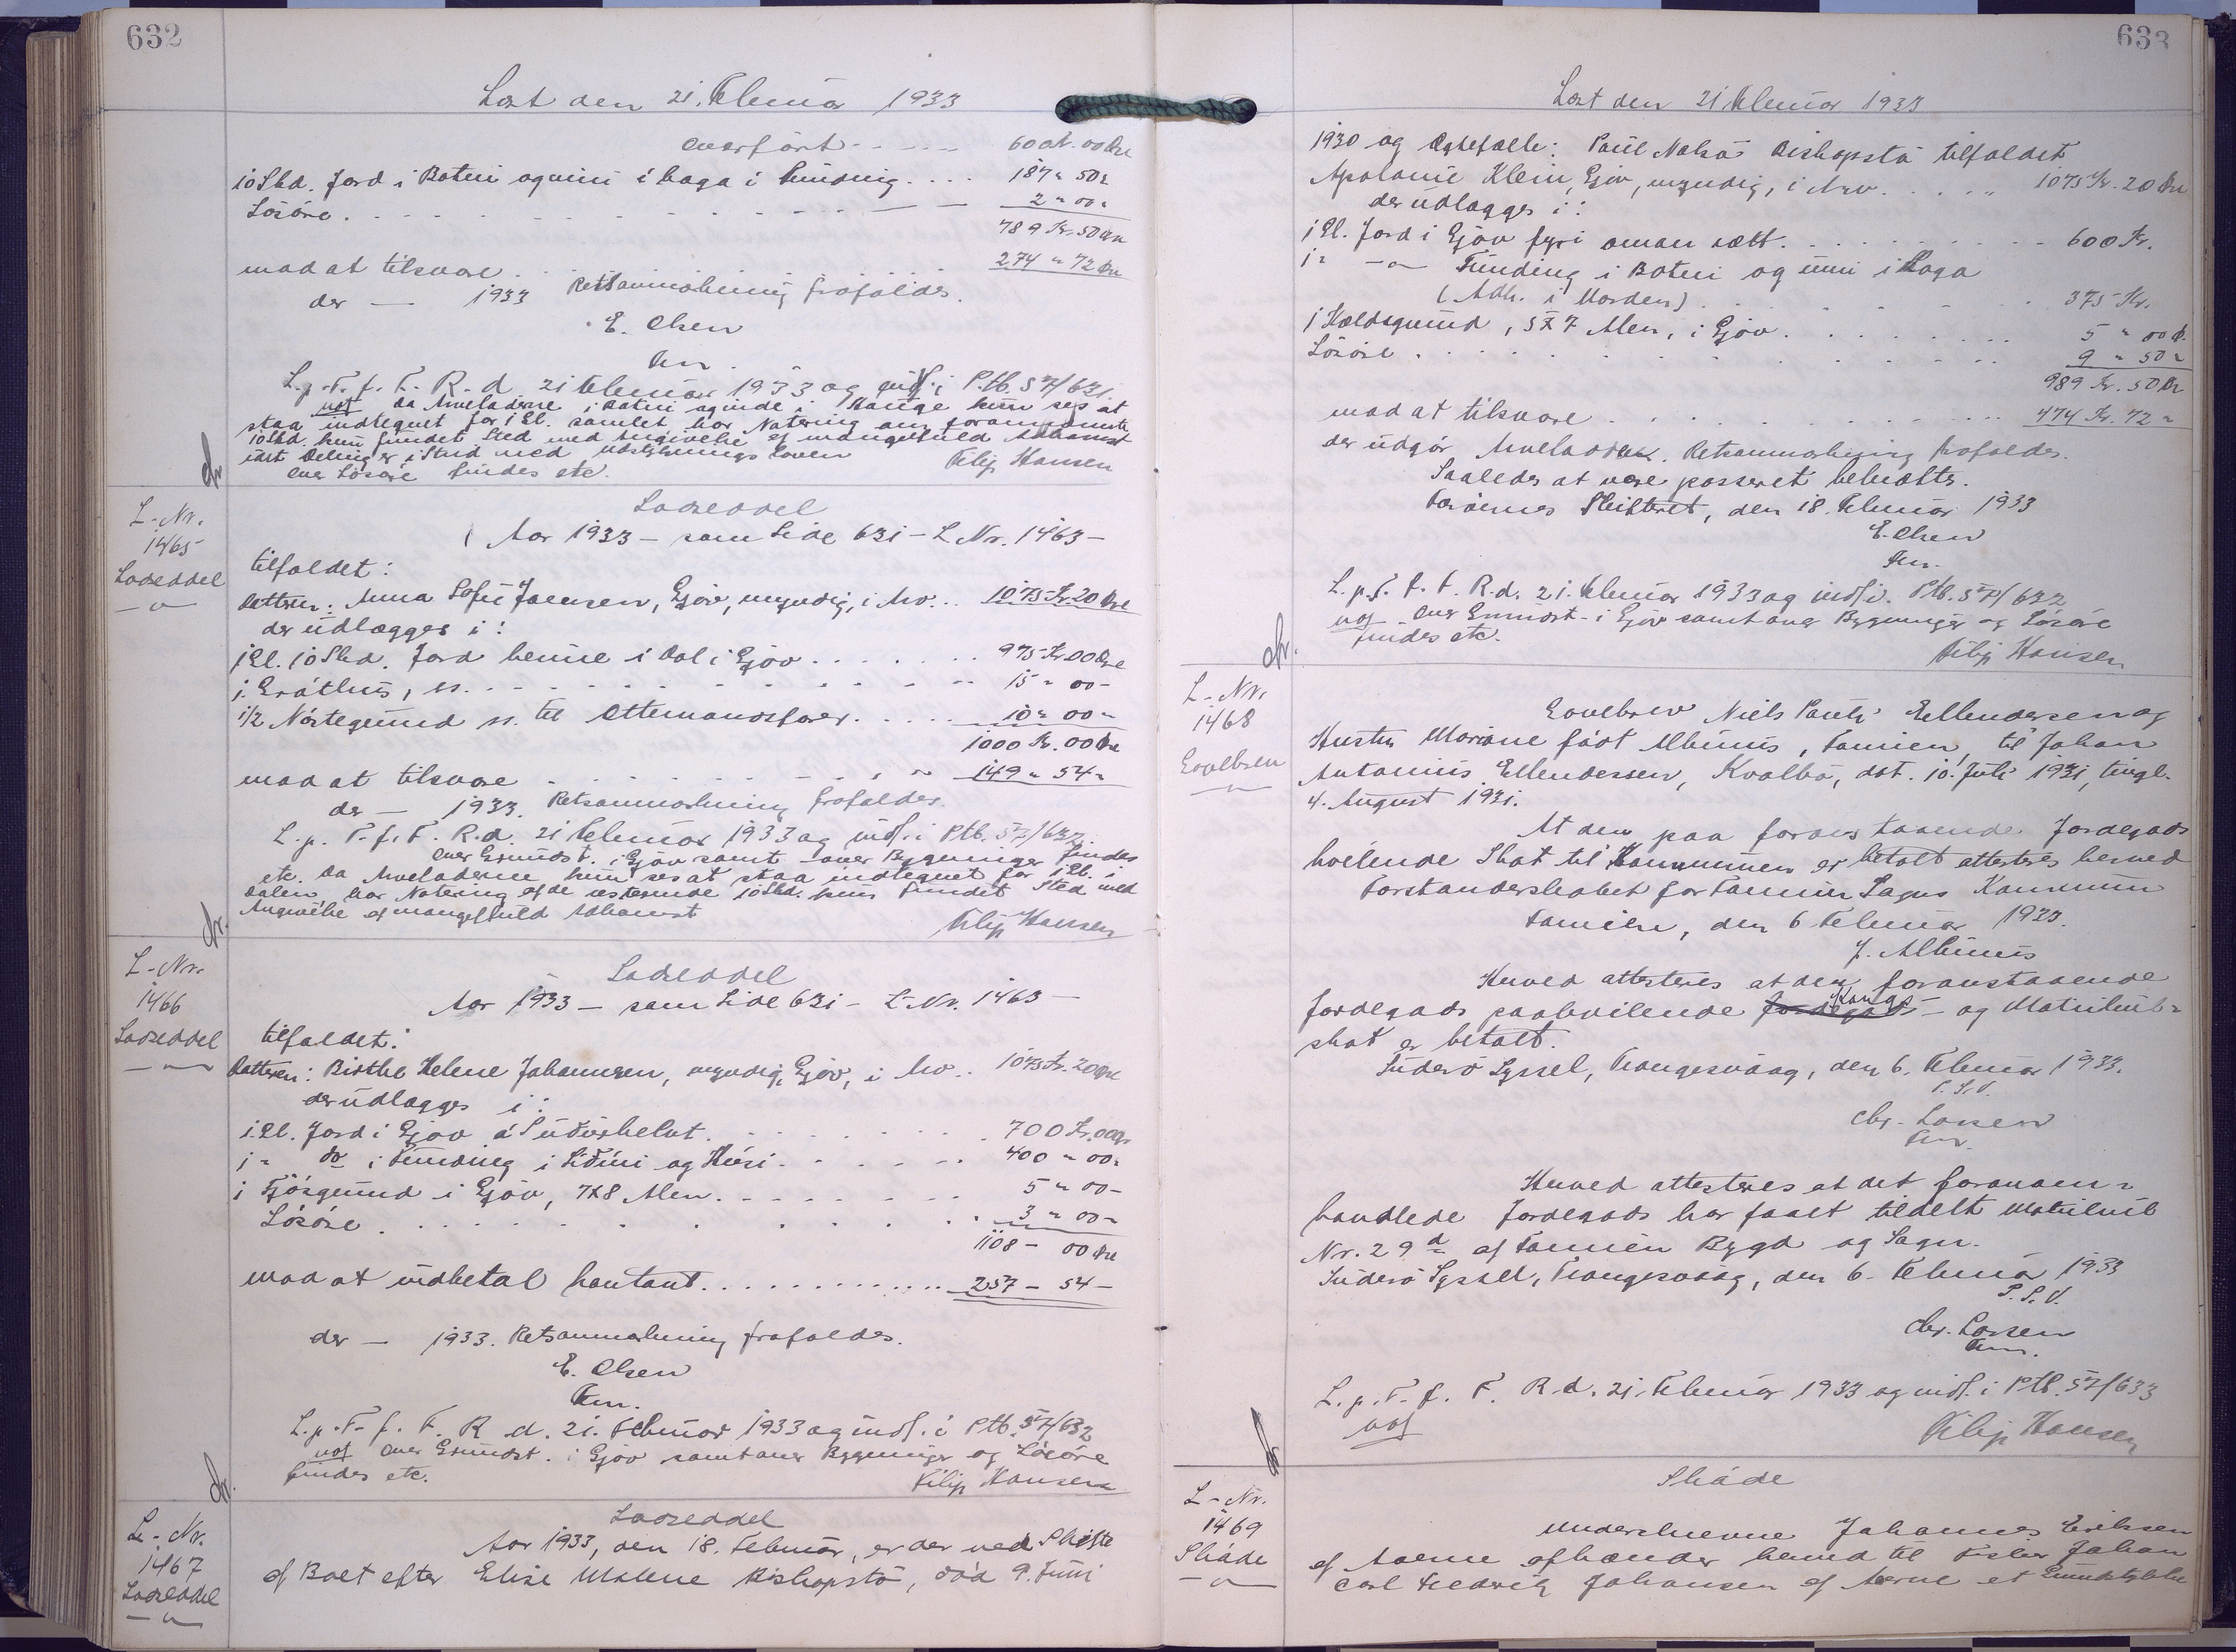 632
Læst den 21. Februar 1933
overført - - - - - 600 Kr. 00 Øre
10 Skd. Jord i Botni og inni i haga i Funding. . . . 187 " 50 "
Lösöre . - - - - - 2 " 00 "
789 Kr. 50 Øre
mod at tilsvare . . . 274 " 72 Øre
der — 1933 Retsanmærkning frafaldes.
E. Olsen
L. p. T. f. F. R. d. 21 Februar 1933 og indf. i P.tb. S 7/631.
da Arveladerne i Botni og inde i Hauge kun ses at
staa indtegnet for 1 Gl. samlet har Notering om foranførte
10 Skd. kun fundet Sted med Angivelse af mangelfuld Adkomst
idet Deling er i Strid med Udstykningsloven
over Lösöre findes etc. Filip Hansen
L.-Nr.
1465
Lodseddel
— " —
Lodseddel
Aar 1933 — som Side 631 – L. Nr. 1463 —
tilfaldet:
Datteren: Anna Sofie Joensen, Gjov, myndig, i Arv... 1075 Kr. 20 Øre
der udlægges i:
1 Gl. 10 Skd. Jord henne i Dal i Gjov . . . . . . . 975 Kr. 00 Øre
1. Gróthus, ss. - - - - - 15 " 00 -
1/2 Nöstegrund ss. til Ottemandsfarer. . . . . 10 " 00 "
1000 Kr. 00 Øre
mod at tilsvare - - - - - 149 " 54 "
der — 1933. Retsanmærkning frafaldes.
L. p. T. f. F. R. d. 21 Februar 1933 og indf. i Ptb. S 7/632.
over Grundst. i Gjov samt over Bygninger findes
etc. da Arveladerne kun ses at staa indtegnet for 1 Gl. i
Dalen, har Notering af de resterende 10 Skd. kun fundet Sted med
Angivelse af mangelfuld Adkomst Filip Hansen
L-Nr.
1466
Lodseddel
— " —
Lodseddel
Aar 1933 — som Side 631 – L-Nr. 1463 —
tilfaldet:
Datteren: Birthe Helene Johannesen, myndig, Gjov, i Arv.. 1075 Kr. 20 Øre
der udlægges i:
1. Gl. Jord i Gjov á Suðurhelvt. - - - - - 700 Kr. 00 Øre
1 " do i Funding i Siðuni og Húsi - - - - - 400 " 00 "
1 Fjósgrund i Gjov, 7x8 Alen. - - - - - 5 " 00 -
Lösöre . . . . . 3 " 00 "
1108 – 00 Øre
mod at indbetal kontant. . . . . . . . . . . . . 257 – 54 –
der — 1933. Retsanmærkning frafaldes.
E. Olsen
L. p. T. f. F. R. d. 21. Februar 1933 og indf. i Ptb. S 7/632
over Grundst. i Gjov samt over Bygninger og Lösöre
findes etc. Filip Hansen
L.-Nr.
1467
Lodseddel
— " —
Lodseddel
Aar 1933, den 18. Februar, er der ved Skifte
af Boet efter Elise Malene Bishopstø, död 9. Juni
633
Læst den 21 Februar 1933
1930 og Ægtefælle: Paul Nolsø Bishopstø tilfaldet
Apolonie Klein, Gjov, myndig, i Arv. . . . . " 1075 Kr. 20 Øre
der udlægges i:
1 Gl. Jord i Gjov fyri oman sett. - - - - - 600 Kr.
1 " — " — Funding i Botni og inni i Haga
(Adk. i Orden) . - - - - - 375 Kr.
1 Kældsgrund, 5 x 7 Alen, i Gjov . . . . . . . . 5 " 00 Ø.
Lösöre . . . . . 9 " 50 "
989 Kr. 50 Ør
mod at tilsvare . . . . . 474 Kr. 72 "
der udgör Arvelodden. Retsanmærkning frafaldes.
Saaledes at være passeret bekræftes.
Færöernes Skifteret, den 18. Februar 1933
E. Olsen
L. p. T. f. F. R. d. 21. Februar 1933 og indf. i. Ptb. S 7/632
over Grundst. i Gjov samt over Bygninger og Lösöre
findes etc.
Filip Hansen
L-Nr.
1468
Gavebrev
— " —
Gavebrev Niels Pauli Ellendersen og
Hustru Mariane födt Albinus, Famien, til Johan
Antonius Ellendersen, Kvalbø, dat. 10. Juli 1931, tingl.
4. August 1931.
At den paa foranstaaende Jordegods
hvilende Skat til Kommunen er betalt attesteres herved
Forstanderskabet for Famien Sogns Kommune
Famien, den 6 Februar 1933.
J. Albinus
Herved attesteres at den foranstaaende
Jordegods paahvilende Kongs- og Matrikul-
skat er betalt.
Suderö Syssel, Trangesvaag, den 6. Februar 1933.
P. S. V.
Chr. Larsen
Herved attesteres at det foranom-
handlede Jordegods har faaet tildelt Matrikul
Nr. 29 d af Famien Bygd og Sogn.
Suderö Syssel, Trangesvaag, den 6. Februar 1933
P. S. V.
Chr. Larsen
L. p. T. f. F. R. d. 21. Februar 1933 og indf. i Ptb. S 7/633
Filip Hansen
L-Nr.
1469
Sköde
— " —
Sköde
Underskrevne Johannes Eriksen
af Aaerne afhænder herved til Fisker Johan
Carl Fredrik Johansen af Aaerne et Grundstykke